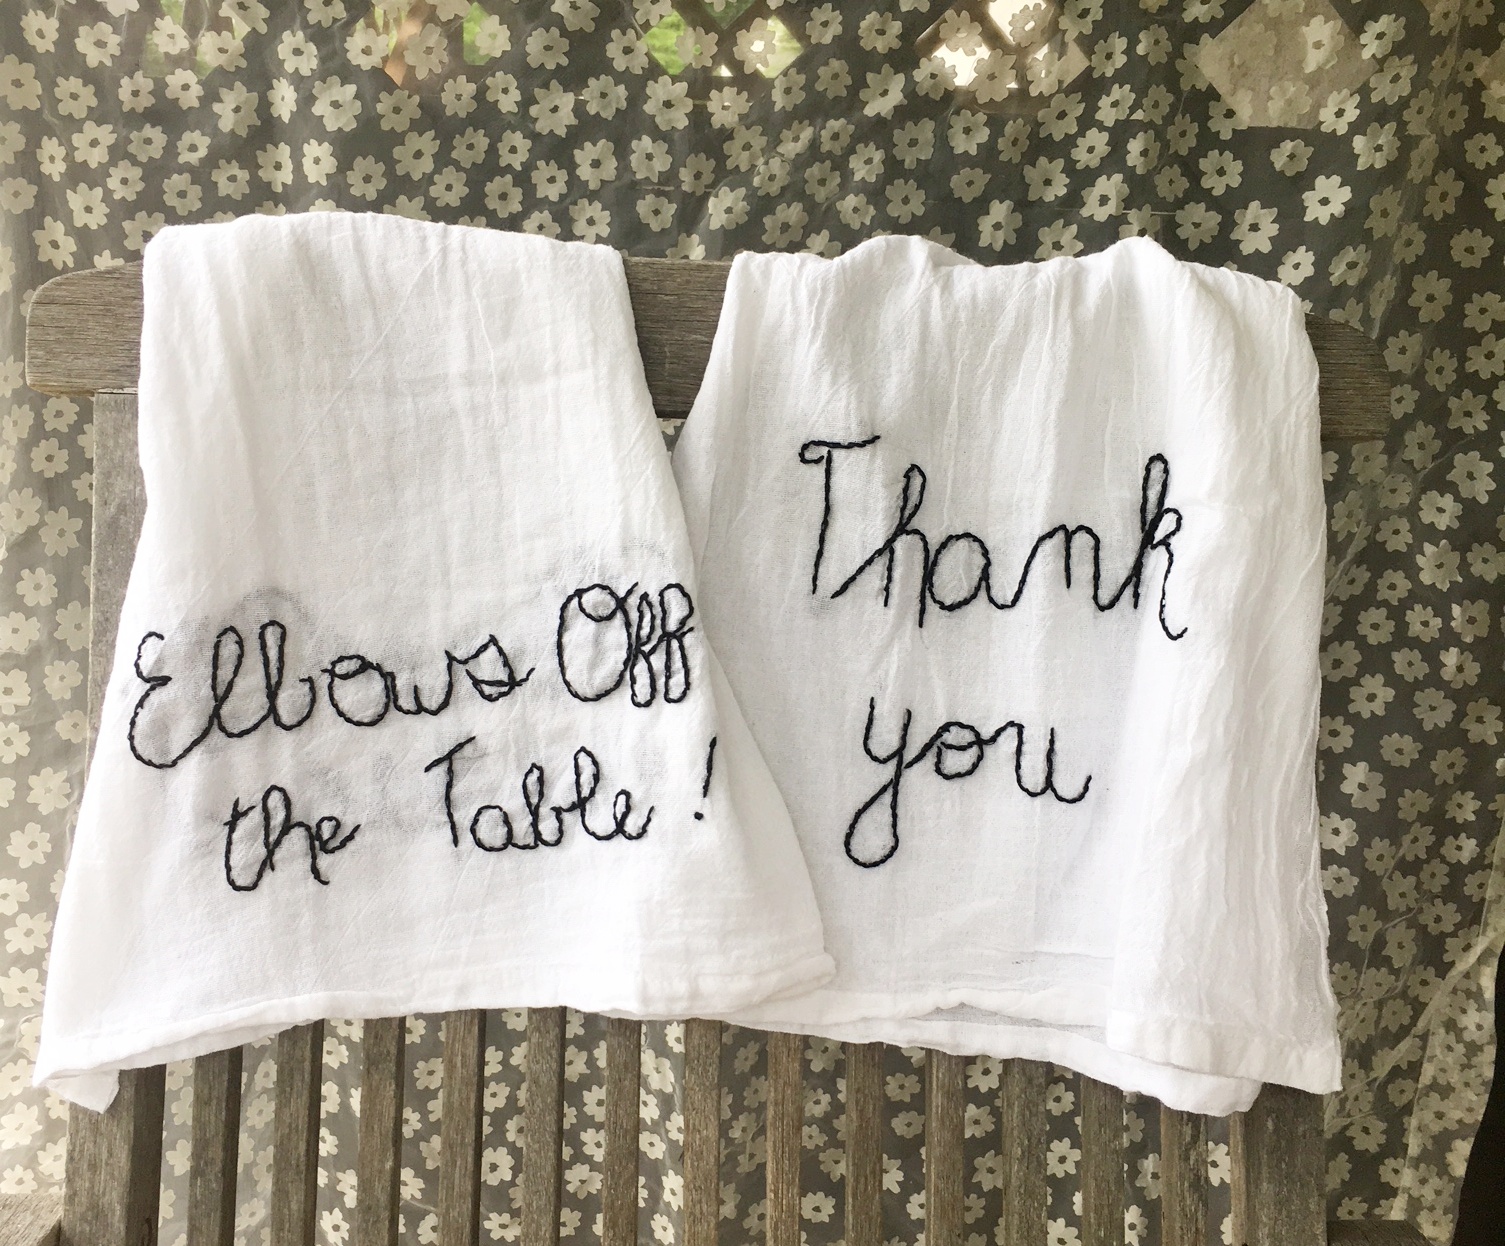 Elbows Off
the Table!
Thank
you